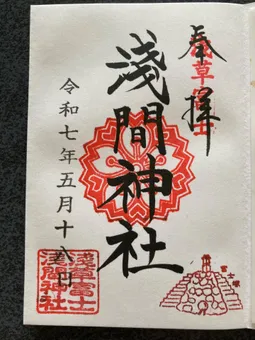 奉拝
浅草富士
淺間神社
令和七年五月十八日
淺草富士
淺間神社
富士塚